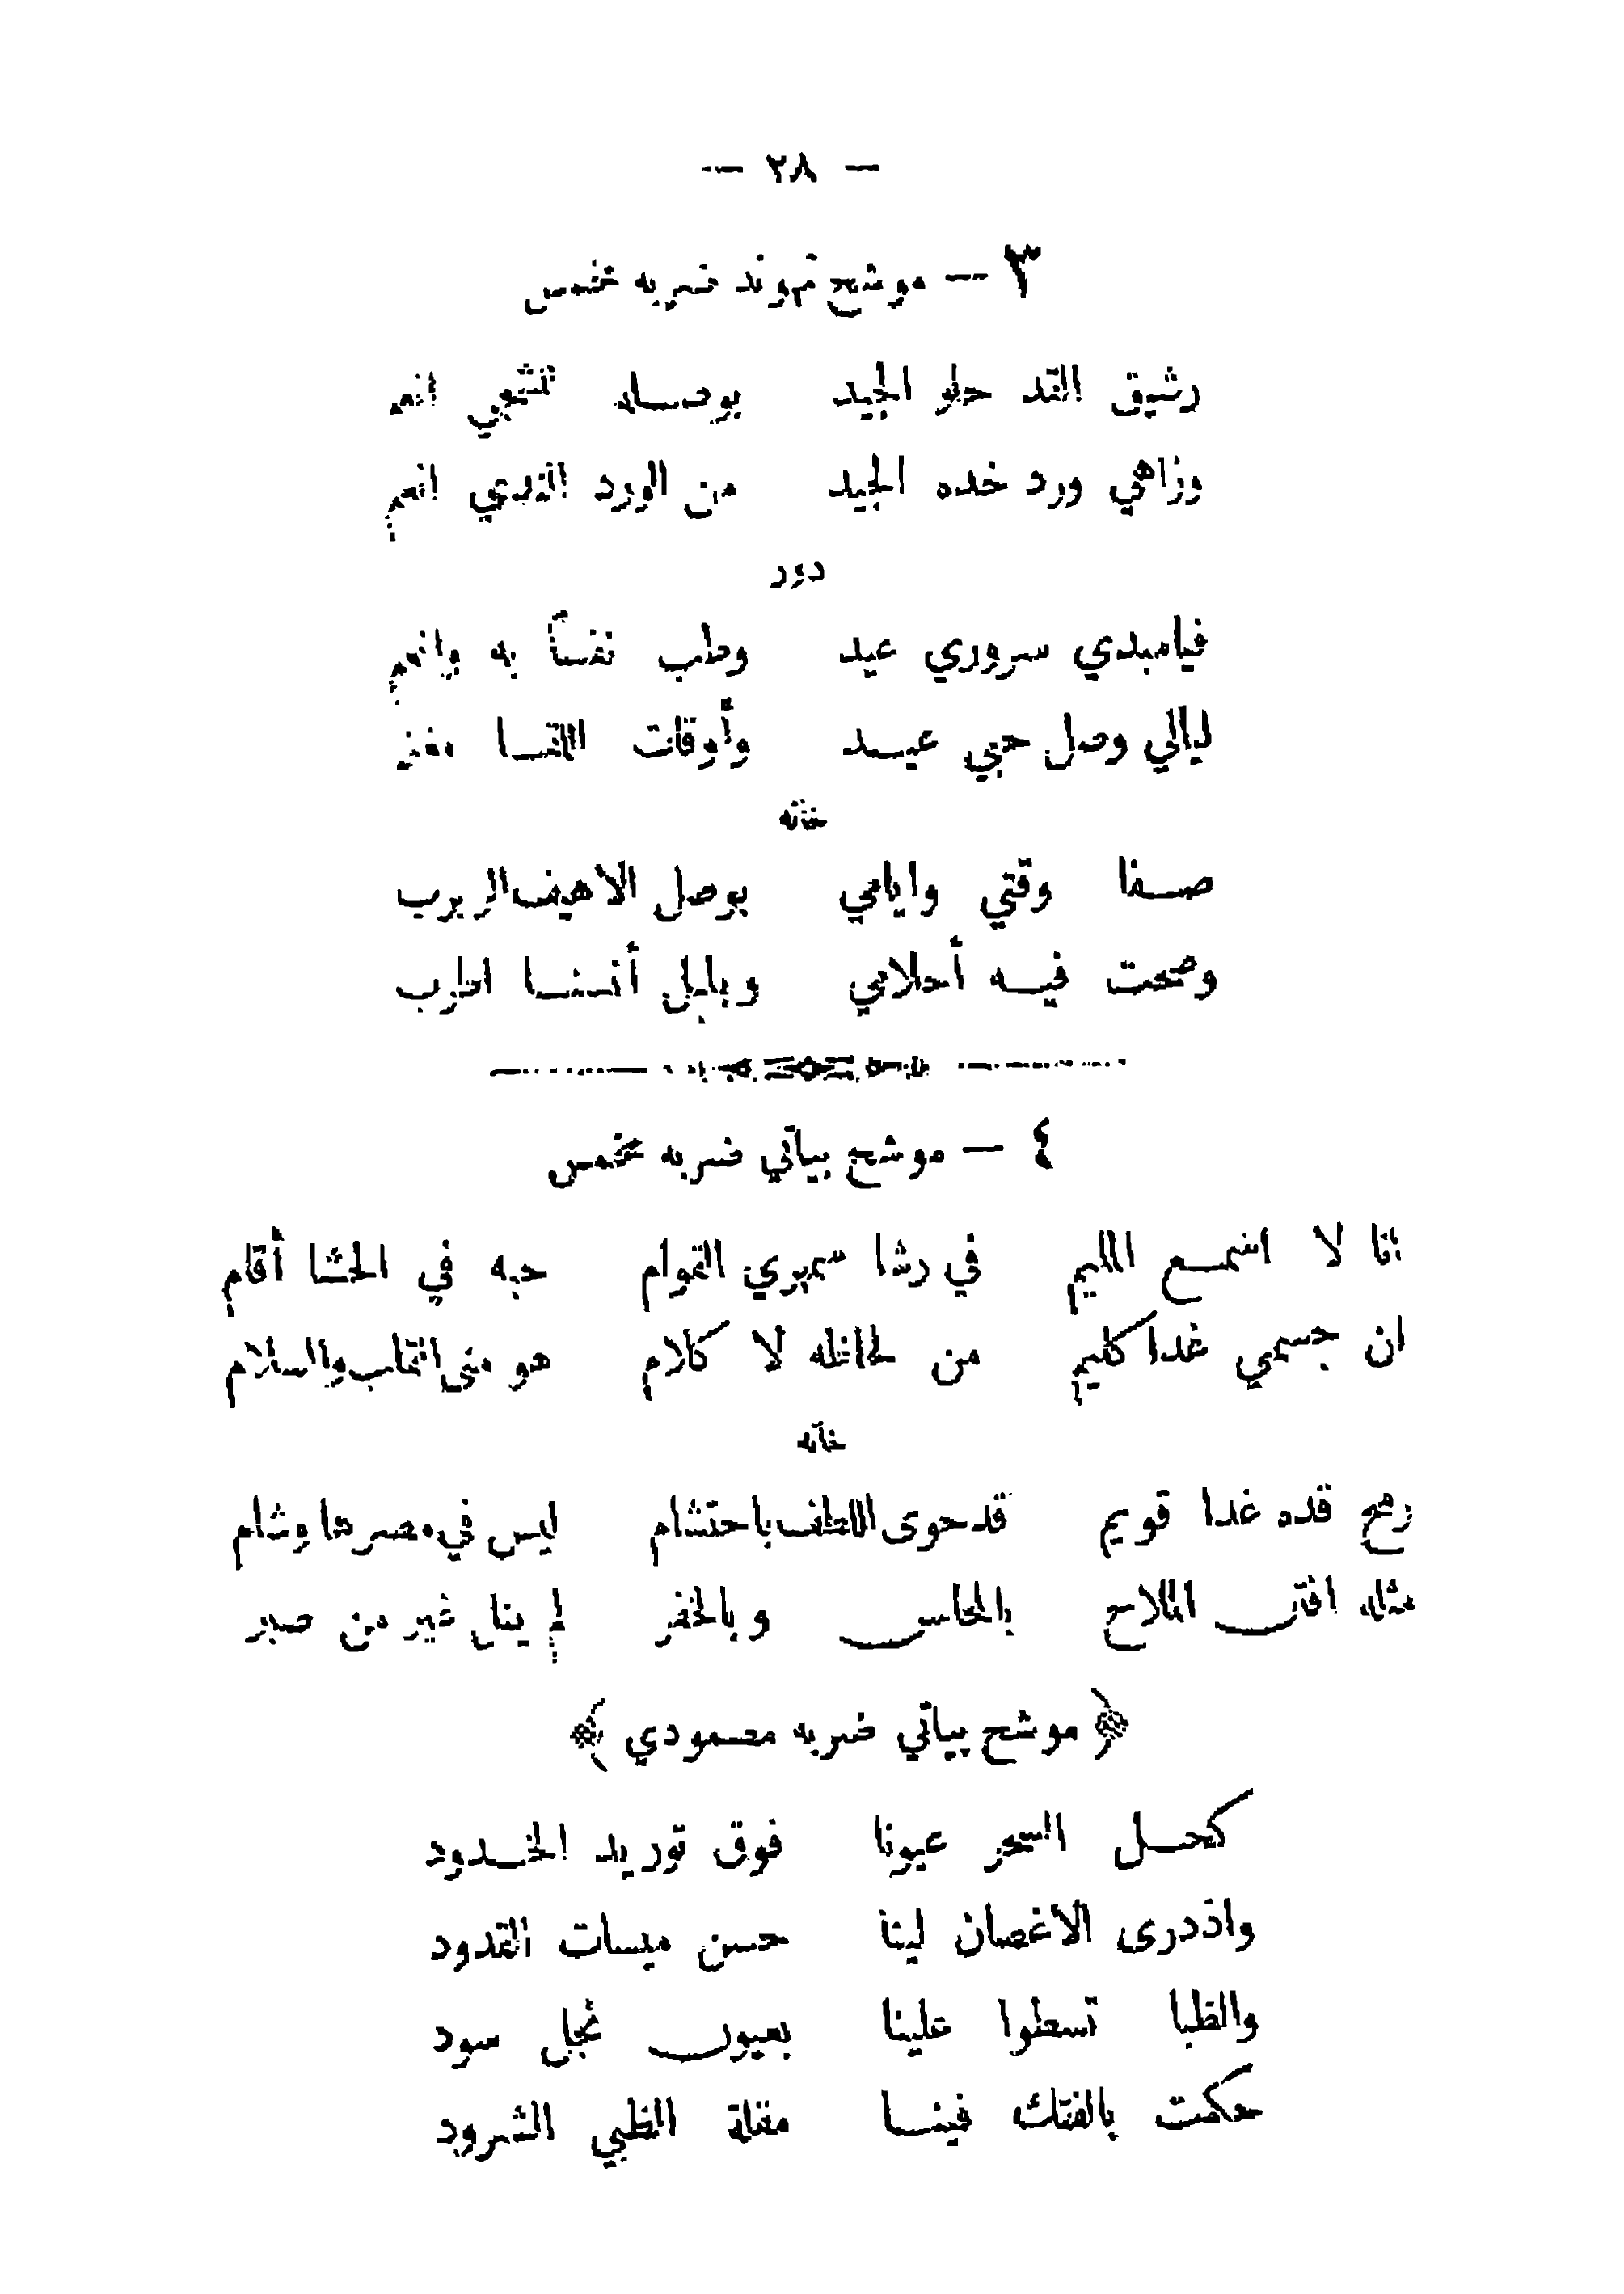 — ٢٨ —
٣ — موشح نهوند ضربه مخمس
رشيق القد حلو الجيد بوصله للشجي انعم
وزاهي ورد خده الجيد من الورد الندي انعم
دور
فيامبدي سروري عيد وطب نفساً به وانعم
ليالي وصل حبي عيد وأوقات اللقا مغنم
خانه
صفا وقتي وايامي بوصل الاهيف الربرب
وصحت فيه أحلامي وبلبل أنسنا اطرب
٤ — موشح بياتي ضربه مخمس
انا لا اسمع المليم في رشا سمهري القوام حبه في الحشا أقام
ان جسمي غدا كليم من لحاظه لا كلام هو منى القلب والسلام
خانه
رمح قده غدا قويم قد حوى اللطف باحتشام ليس في مصرها وشام
مثله افتن الملاح بالمحاسن وبالخفر لم ينل غير من صبر
﴿ موشح بياتي ضربه مصمودي ﴾
كحل السحر عيونا فوق توريد الخدود
واذدرى الاغصان لينا حسن ميسات القدود
والظبا تسطوا علينا بعيون نجل سود
حكمت بالفتك فينا مقلة الظبي الشرود